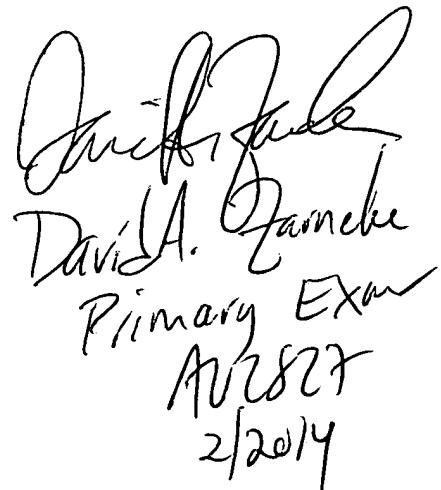 David A. Zarneke
Primary Exam
AU2827
2/2014